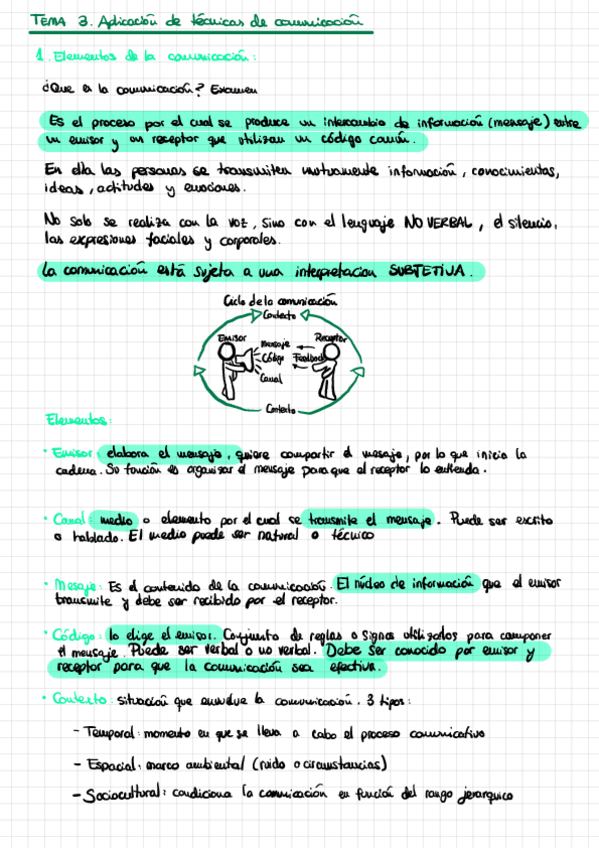 TEMA 3. Aplicación de técnicas de comunicación
1. Elementos de la comunicación:
¿Que es la comunicación? Examen
Es el proceso por el cual se produce un intercambio de información (mensaje) entre
un emisor y un receptor que utilizan un código común.
En ella las personas se transmiten mutuamente información, conocimientos,
ideas, actitudes y emociones.
No solo se realiza con la voz, sino con el lenguaje NO VERBAL, el silencio,
las expresiones faciales y corporales.
La comunicación está sujeta a una interpretacion SUBTETIVA.
Ciclo de la comunicación
Contexto
Emisor
Receptor
Mensaje
Código
Feedback
Canal
Contexto
Elementos:
· Emisor: elabora el mensaje, quiere compartir el mesaje, por lo que inicia la
cadena. Su función es organizar el mensaje para que el receptor lo entienda.
· Canal: medio o elemento por el cual se transmite el mensaje. Puede ser escrito
o hablado. El medio puede ser natural o técnico
· Mesaje: Es el contenido de la comunicación. El núcleo de información que el emisor
transmite y debe ser recibido por el receptor.
· Código: lo elige el emisor. Conjunto de reglas o signos utilizados para componer
el mensaje. Puede ser verbal o no verbal. Debe ser conocido por emisor y
receptor para que la comunicación sea efectiva.
· Contexto: situación que envuelve la comunicación. 3 tipos:
- Temporal: momento en que se lleva a cabo el proceso comunicativo
- Espacial: marco ambiental (ruido o circunstancias)
- Sociocultural: condiciona la comunicación en función del rango jerarquico